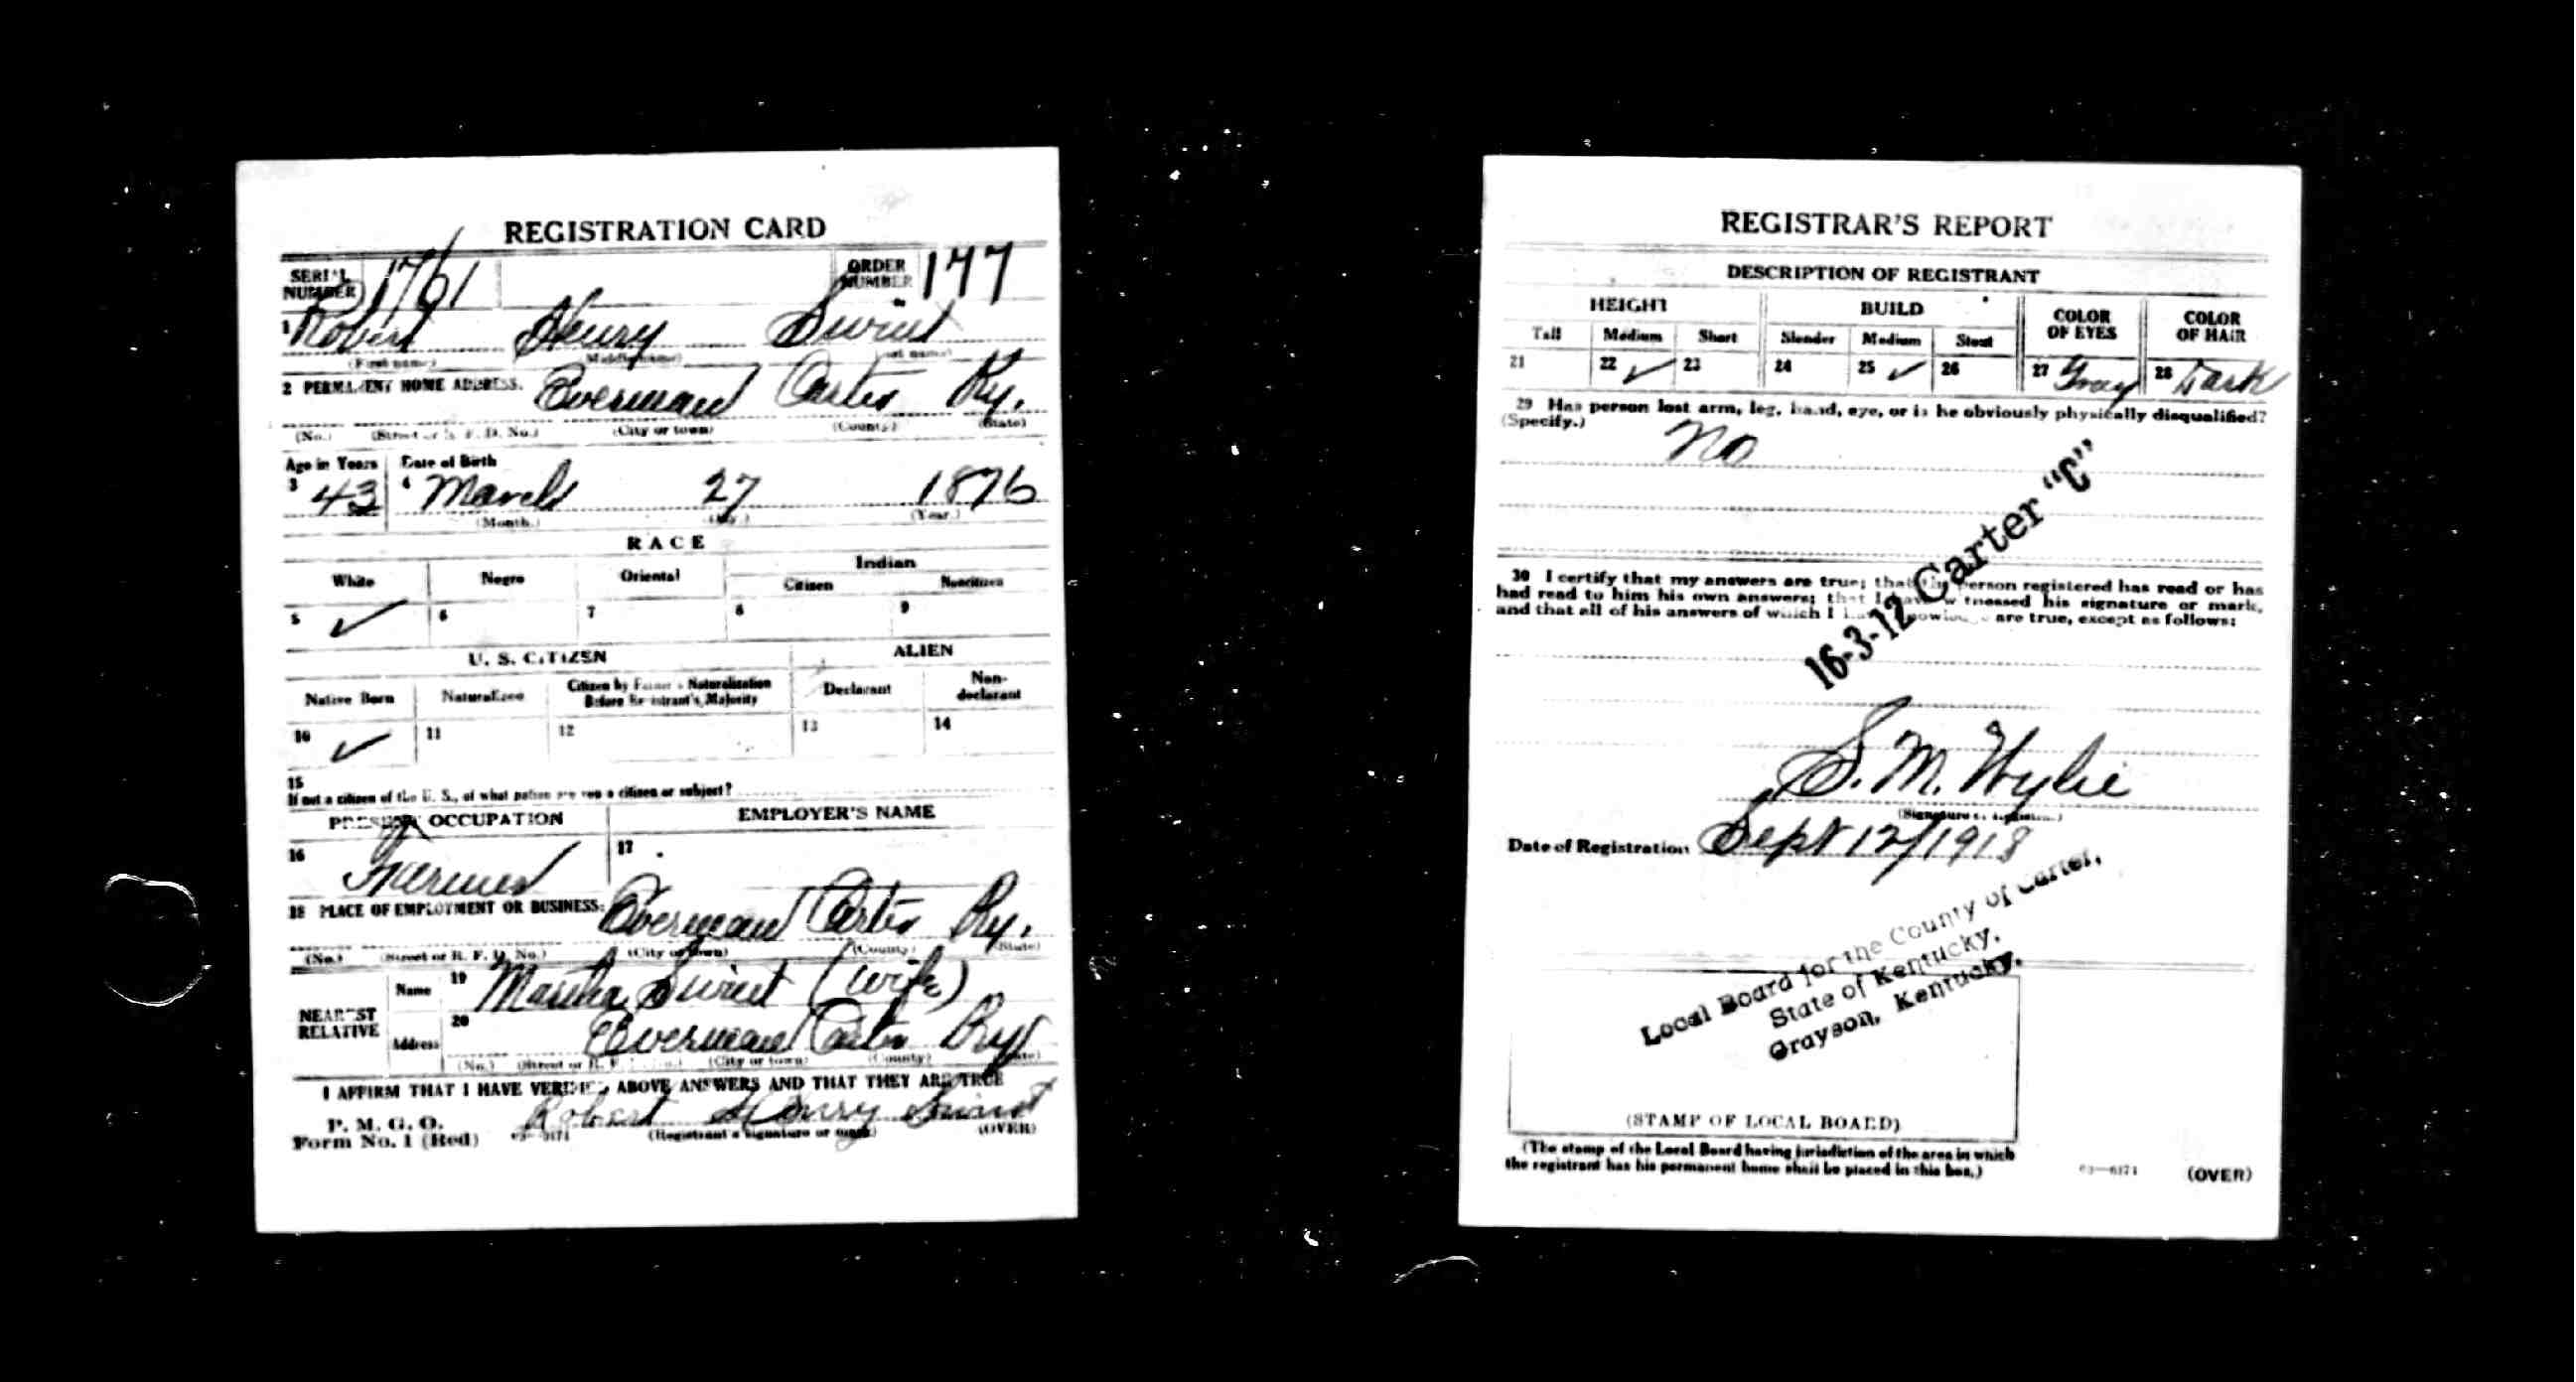 REGISTRATION CARD
SERIAL NUMBER 1761 ORDER NUMBER 177
1 Robert Henry
(First name) (Middle name) (Last name)
2 PERMANENT HOME ADDRESS. Everman Carter Ky.
(No.) (Street or R. F. D. No.) (City or town) (County) (State)
Age in Years Date of Birth
3 43 4 March 27 1876
(Month.) (Day.) (Year.)
RACE
White Negro Oriental Indian
Citizen Noncitizen
5 ✓ 6 7 8 9
U. S. CITIZEN ALIEN
Native Born Naturalized Citizen by Father's Naturalization Before Registrant's Majority Declarant Non-declarant
10 ✓ 11 12 13 14
15
If not a citizen of the U. S., of what nation are you a citizen or subject?
PRESENT OCCUPATION EMPLOYER'S NAME
16 17
18 PLACE OF EMPLOYMENT OR BUSINESS: Everman Carter Ky.
(No.) (Street or R. F. D. No.) (City or town) (County) (State)
NEAREST RELATIVE Name 19 Martha (wife)
Address 20 Everman Carter Ky
(No.) (Street or R. F. D. No.) (City or town) (County) (State)
I AFFIRM THAT I HAVE VERIFIED ABOVE ANSWERS AND THAT THEY ARE TRUE
P. M. G. O.
Form No. 1 (Red) 03—6171 Robert Henry
(Registrant's signature or mark) (OVER)
REGISTRAR'S REPORT
DESCRIPTION OF REGISTRANT
HEIGHT BUILD COLOR OF EYES COLOR OF HAIR
Tall Medium Short Slender Medium Stout
21 22 ✓ 23 24 25 ✓ 26 27 Gray 28 Dark
29 Has person lost arm, leg, hand, eye, or is he obviously physically disqualified?
(Specify.)
No
30 I certify that my answers are true; that the person registered has read or has
had read to him his own answers; that I have witnessed his signature or mark,
and that all of his answers of which I have knowledge are true, except as follows:
16-3-12 Carter "C"
S. M. Wylie
(Signature of Registrar.)
Date of Registration Sept 12/1918
Local Board for the County of Carter,
State of Kentucky,
Grayson, Kentucky.
(STAMP OF LOCAL BOARD)
(The stamp of the Local Board having jurisdiction of the area in which
the registrant has his permanent home shall be placed in this box.)
03—6171 (OVER)